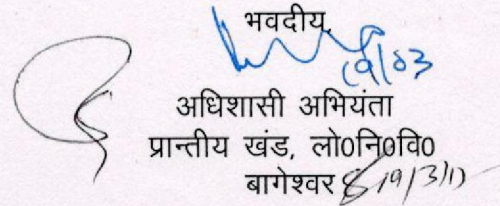 भवदीय,
19/03
अधिशासी अभियंता
प्रान्तीय खंड, लो0नि0वि0
बागेश्वर 19/3/17